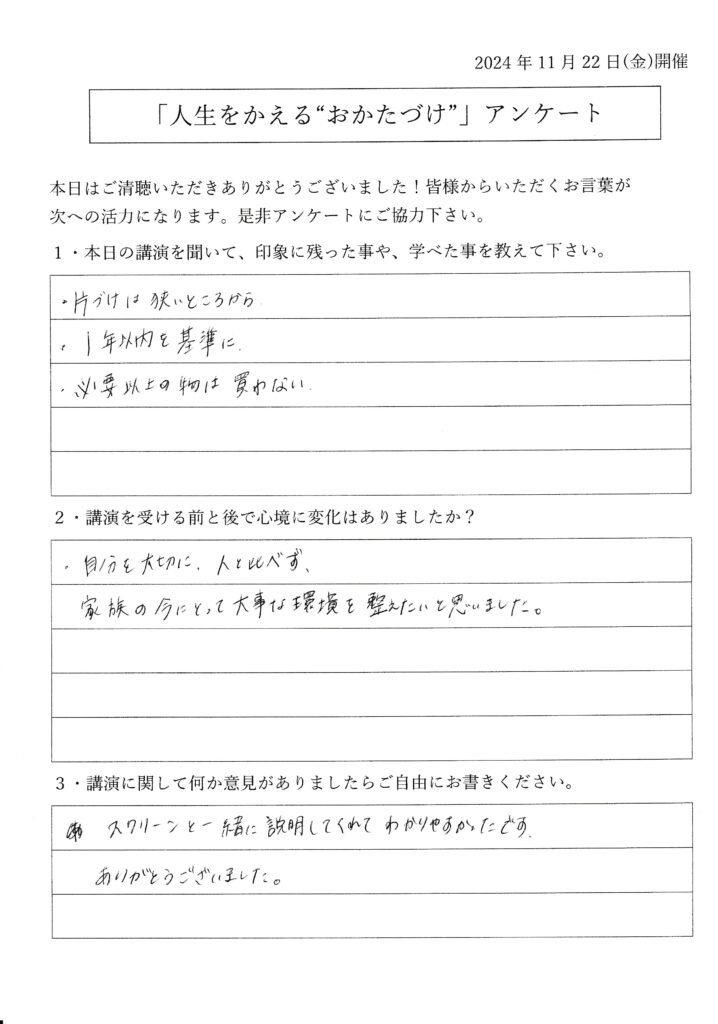 2024 年 11 月 22 日(金)開催
「人生をかえる“おかたづけ”」アンケート
本日はご清聴いただきありがとうございました！皆様からいただくお言葉が
次への活力になります。是非アンケートにご協力下さい。
１・本日の講演を聞いて、印象に残った事や、学べた事を教えて下さい。
・片づけは狭いところから.
・1年以内を基準に.
・必要以上の物は買わない.
２・講演を受ける前と後で心境に変化はありましたか？
・自分を大切に、人と比べず、
家族の今にとって大事な環境を整えたいと思いました。
３・講演に関して何か意見がありましたらご自由にお書きください。
スクリーンと一緒に説明してくれてわかりやすかったです.
ありがとうございました。